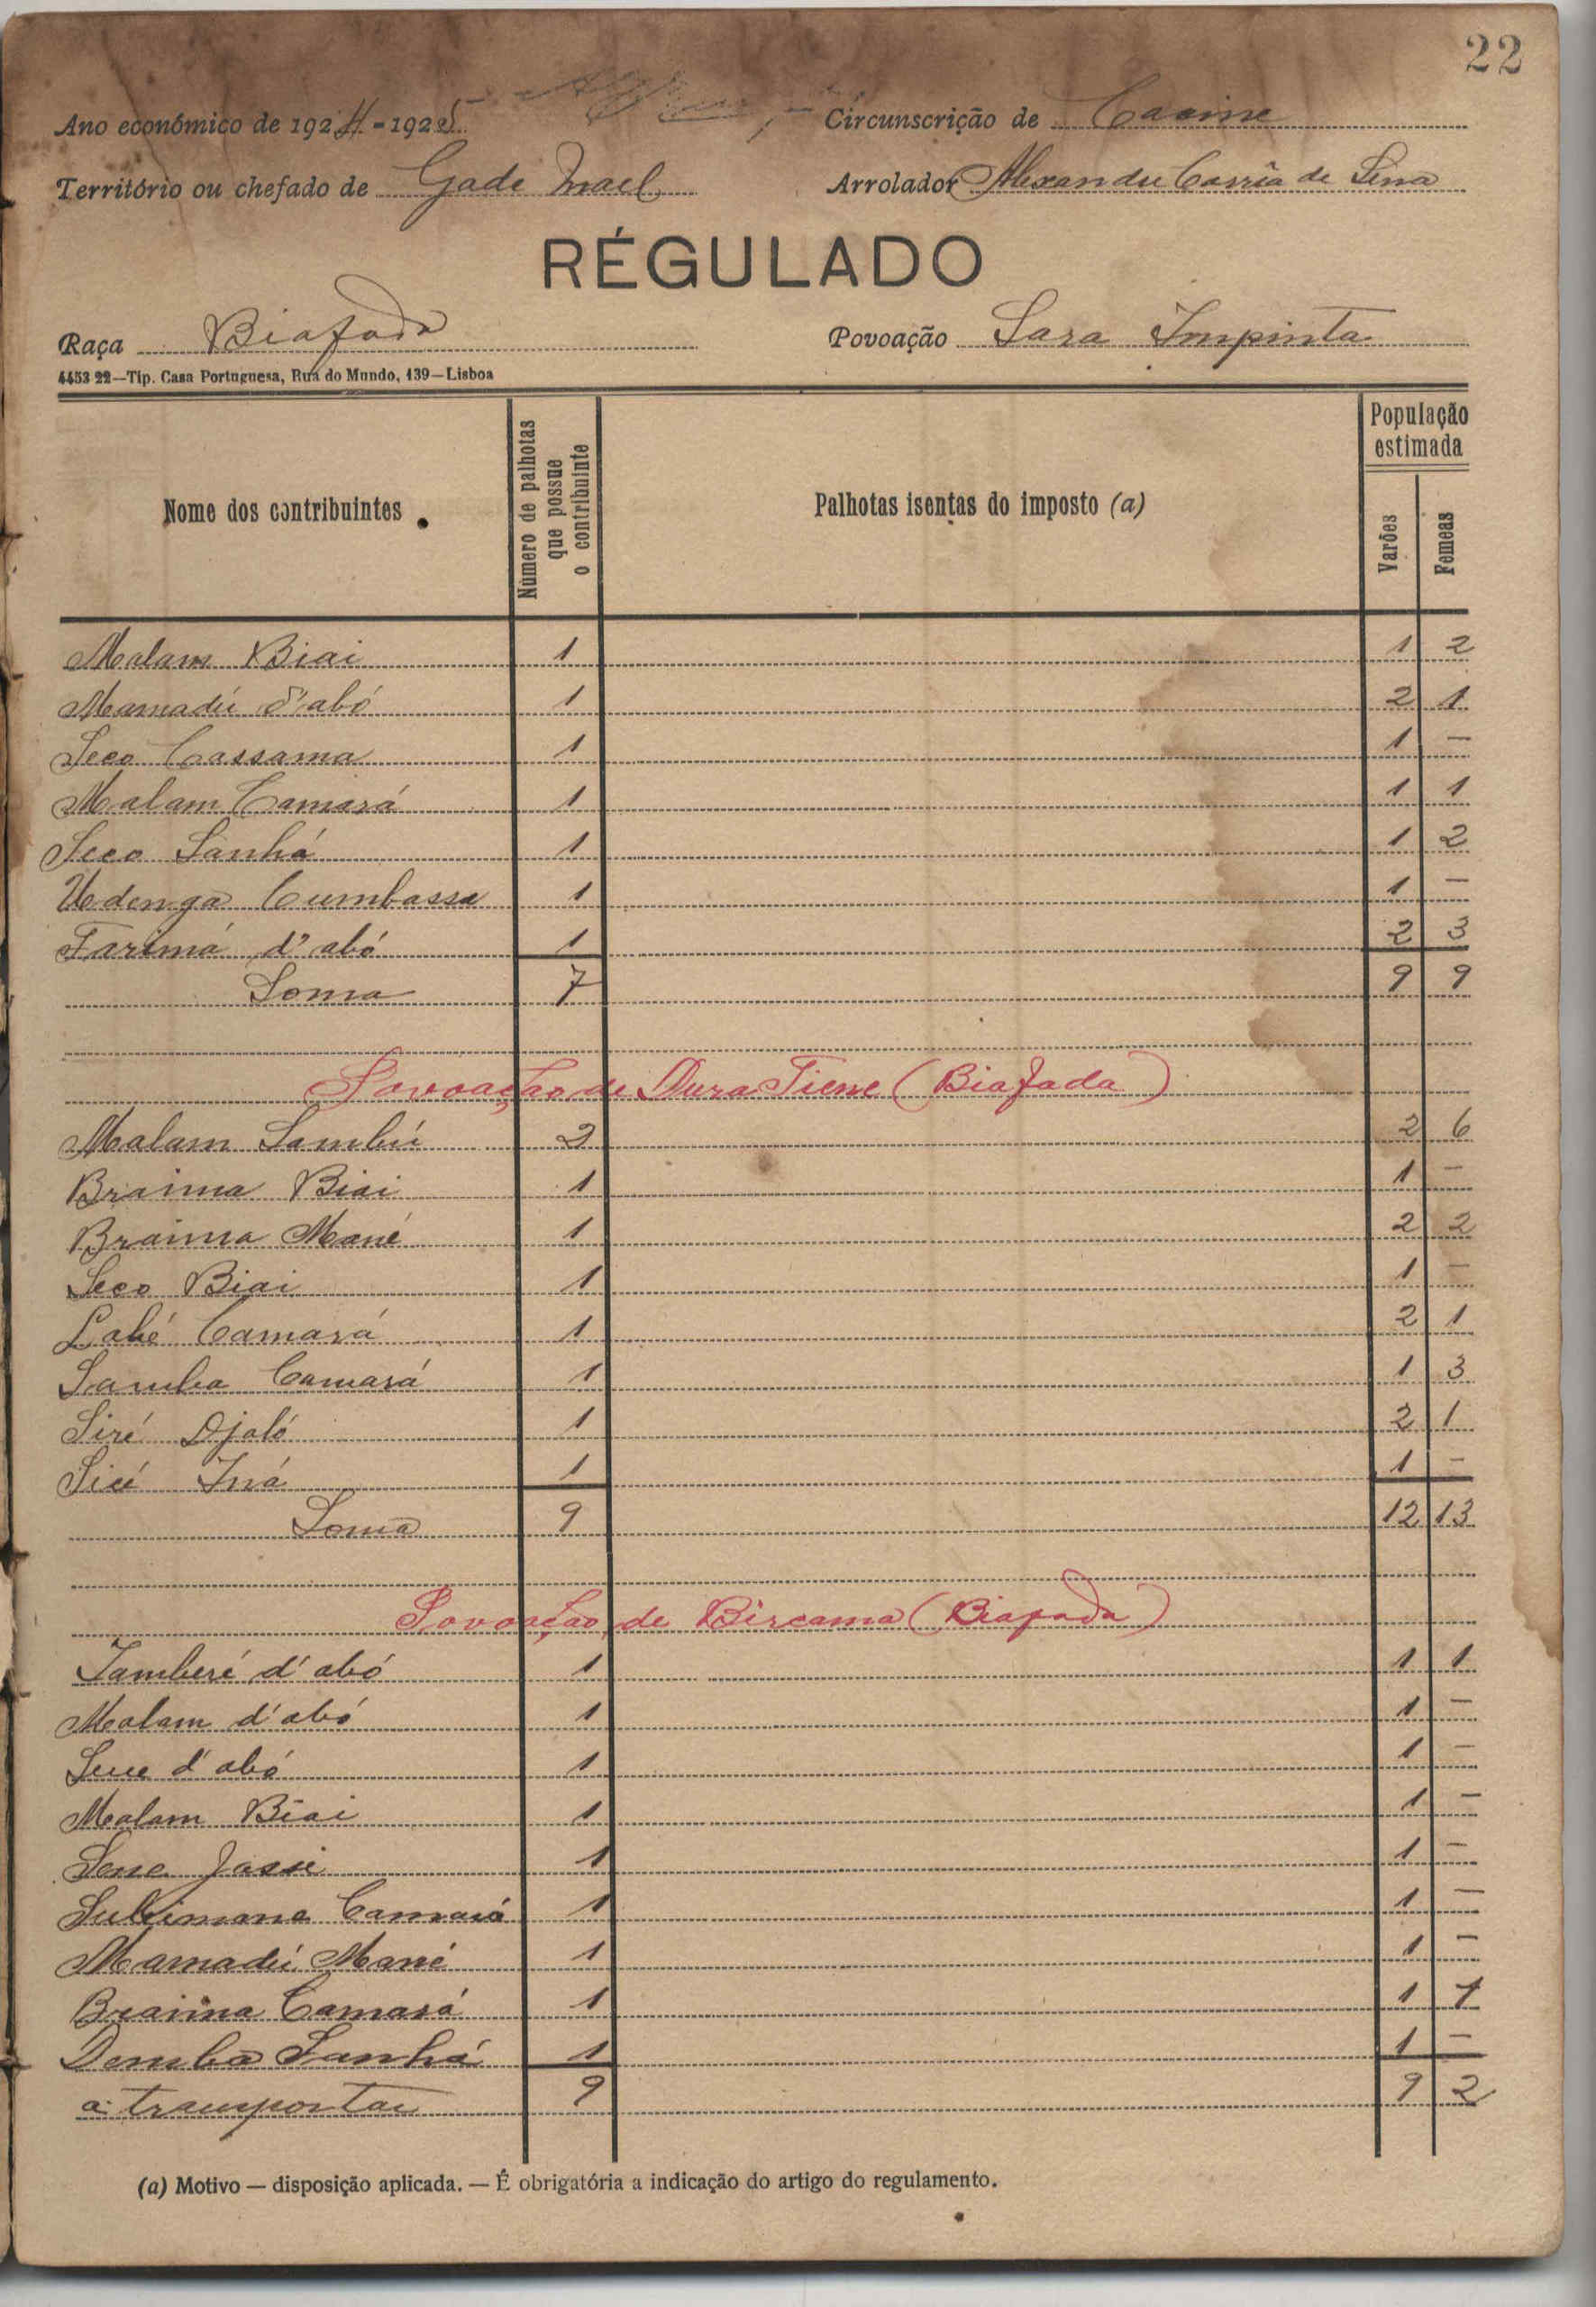 22
Ano económico de 1924-1925 Circunscrição de Cacine
Território ou chefado de Gade Inael Arrolador Alexandre Corrêa de Sena
RÉGULADO
Raça Biafada Povoação Sara Impinta
4453 22—Tip. Casa Portuguesa, Rua do Mundo, 139—Lisboa
Nome dos contribuintes Número de palhotas que possue o contribuinte Palhotas isentas do imposto (a) População estimada Varões Femeas
Malam Biai 1 1 2
Mamadú d'abó 1 2 1
Seco Cassama 1 1 —
Malam Camará 1 1 1
Seco Sanhá 1 1 2
Udenga Cumbassa 1 1 —
Farimá d'abó 1 2 3
Soma 7 9 9
Povoação de Dura Tiene (Biafada)
Malam Sambú 2 2 6
Braima Biai 1 1 —
Braima Mané 1 2 2
Seco Biai 1 1 —
Labé Camará 1 2 1
Samba Camará 1 1 3
Siré Djaló 1 2 1
Sicé Iná 1 1 —
Soma 9 12 13
Povoação de Bircama (Biafada)
Tamberé d'abó 1 1 1
Malam d'abó 1 1 —
d'abó 1 1 —
Malam Biai 1 1 —
Sene Jassi 1 1 —
Suleimane Camará 1 1 —
Mamadú Mané 1 1 —
Braima Camará 1 1 1
Demba Sanhá 1 1 —
a transportar 9 9 2
(a) Motivo — disposição aplicada. — É obrigatória a indicação do artigo do regulamento.